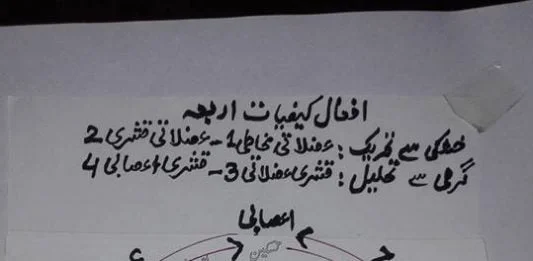 افعال کیفیات اربعہ
خشکی سے تحریک: عضلاتی مخاطی 1 - عضلاتی قشری 2
گرمی سے تحلیل: قشری عضلاتی 3 - قشری اعصابی 4
اعصابی
تسکین